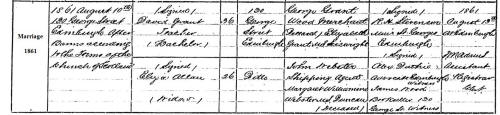 Marriage
1861
1861 August 10th
130 George Street
Edinburgh After
Banns according
to the Forms of the
Church of Scotland
(Signed)
David Grant
(Bachelor)
(Signed)
Eliza Allan
(Widow)
36
36
130
George
Street
Edinburgh
Ditto
George Grant
Wood Merchant
(Deceased) Elizabeth
Grant
John Webster
Shipping Agent
Margaret Williamina
Webster
Duncan
(Deceased)
(Signed)
R. H. Stevenson
St. George
Edinburgh
(Signed)
Witness
James Wood
Bookseller 130
George St. Witness
1861
August 13th
At Edinburgh
Assistant
Registrar